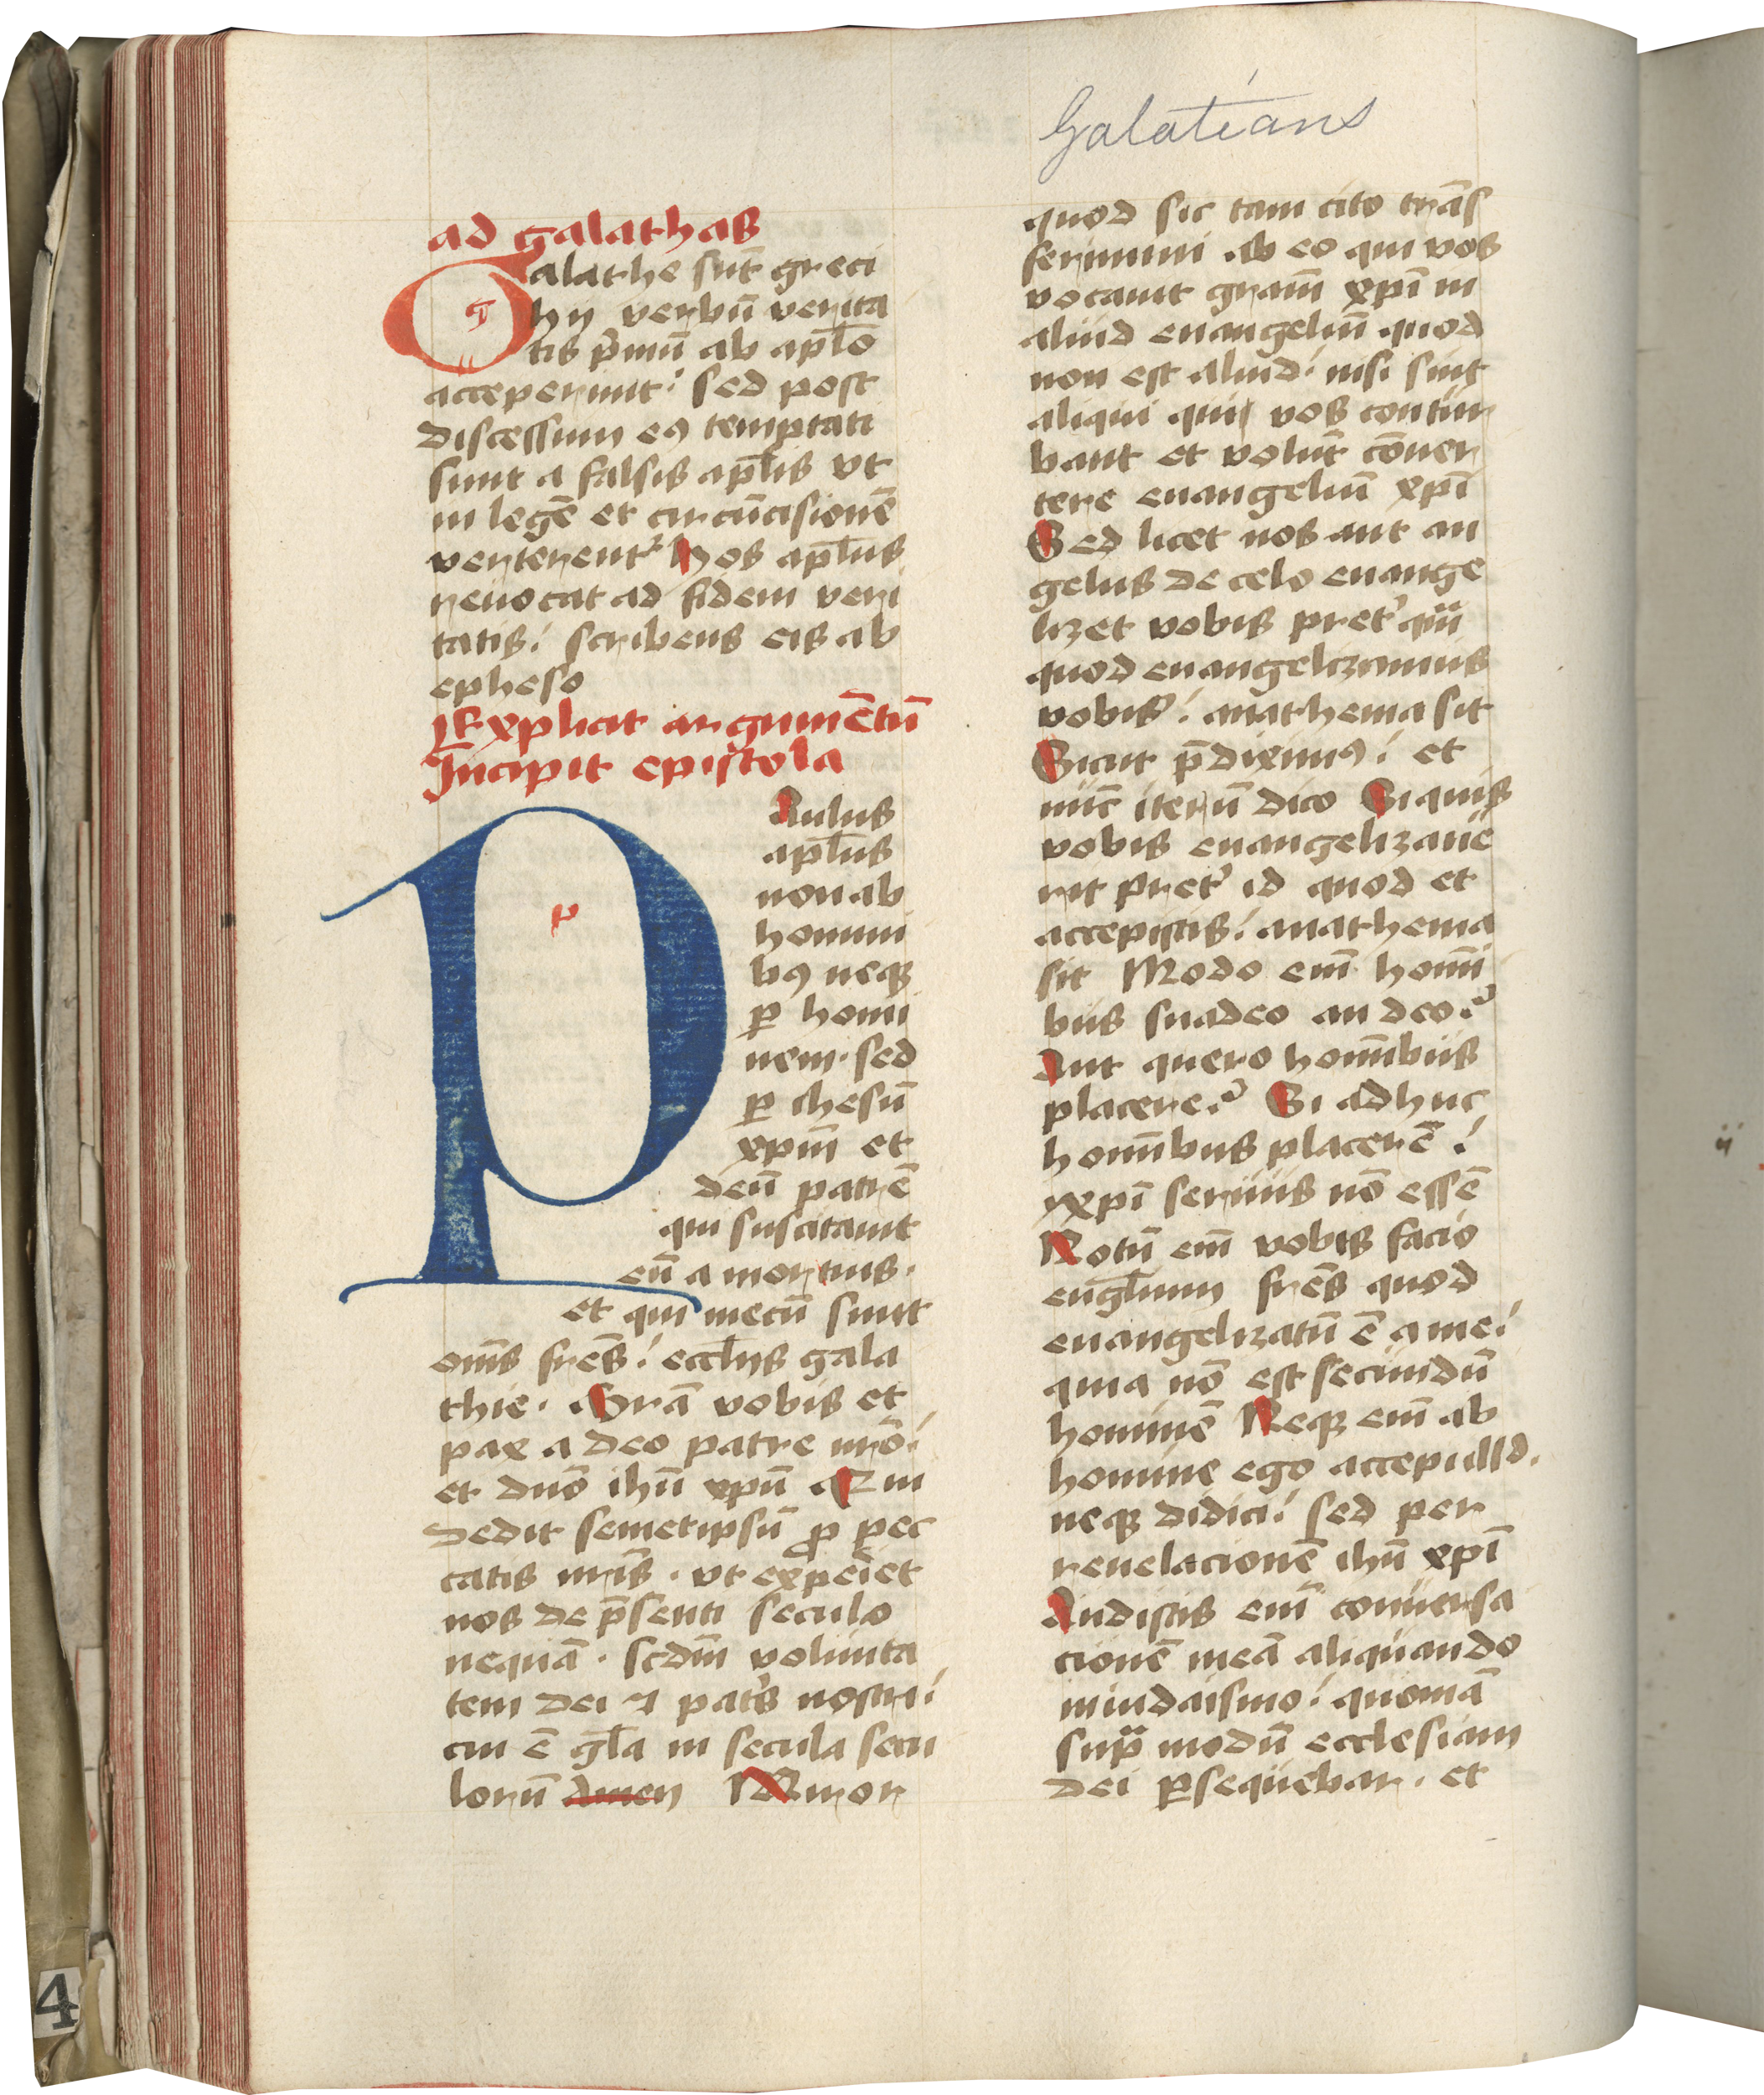 Galatians
ad galathas
Galathe sūt greci
hij verbū verita
tis p̄mū ab apl̄o
acceperunt: sed post
discessum eꝯ temptati
sunt a falsis apl̄is vt
in legē et circūcisionē
verterent᷑ hos apl̄us
reuocat ad fidem veri
tatis: scribens eis ab
epheso
Explicit argumētū
Incipit epistola
PAulus
apl̄us
non ab
homini
bꝯ neqꝫ
ꝑ homi
nem. sed
ꝑ ihesū
xpm̄ et
deū patrē
qui suscitauit
eū a mortuis.
et qui mecū sunt
om̄s fr̄es: eccl̄ijs gala
thie. Gr̄a vobis et
pax a deo patre nr̄o:
et dn̄o ihū xpū Qui
dedit semetipsū ꝓ pec
catis nr̄is. vt exp̄eiet
nos de p̄senti seculo
nequā. scdm̄ volunta
tem dei ⁊ pat's nostri:
cui ē gl̄a in secula secu
lorū amen Miror
quod sic tam cito trās
ferimini ab eo qui vos
vocauit gr̄am xpī in
aliud euangeliū quod
non est aliud: nisi sint
aliqui qui vos contur
bant et volūt cōuer
tere euangeliū xpī
Sed licet nos aut an
gelus de celo euange
lizet vobis pret᷑ qͫ
quod euangelizamus
vobis: anathema sit
Sicut p̄diximꝯ: et
nūc iterū dico Si quis
vobis euangelizaue
rit pret᷑ id quod et
accepistis: anathema
sit Modo em̄ homi
bus suadeo an deo?
Aut quero hom̄ibus
placere? Si adhuc
hom̄ibus placerē:
xpī seruus nō essē
Notū em̄ vobis facio
eugl̄ium fr̄es quod
euangelizatū ē a me:
quia nō est secundū
hominē Neqꝫ em̄ ab
homine ego accepi illd.
neqꝫ didici: sed per
reuelacionē ihū xpī
Audistis em̄ conuersa
cionē meā aliquando
in iudaismo: quoniā
supͣ modū ecclesiam
dei ꝑsequebar. et
4